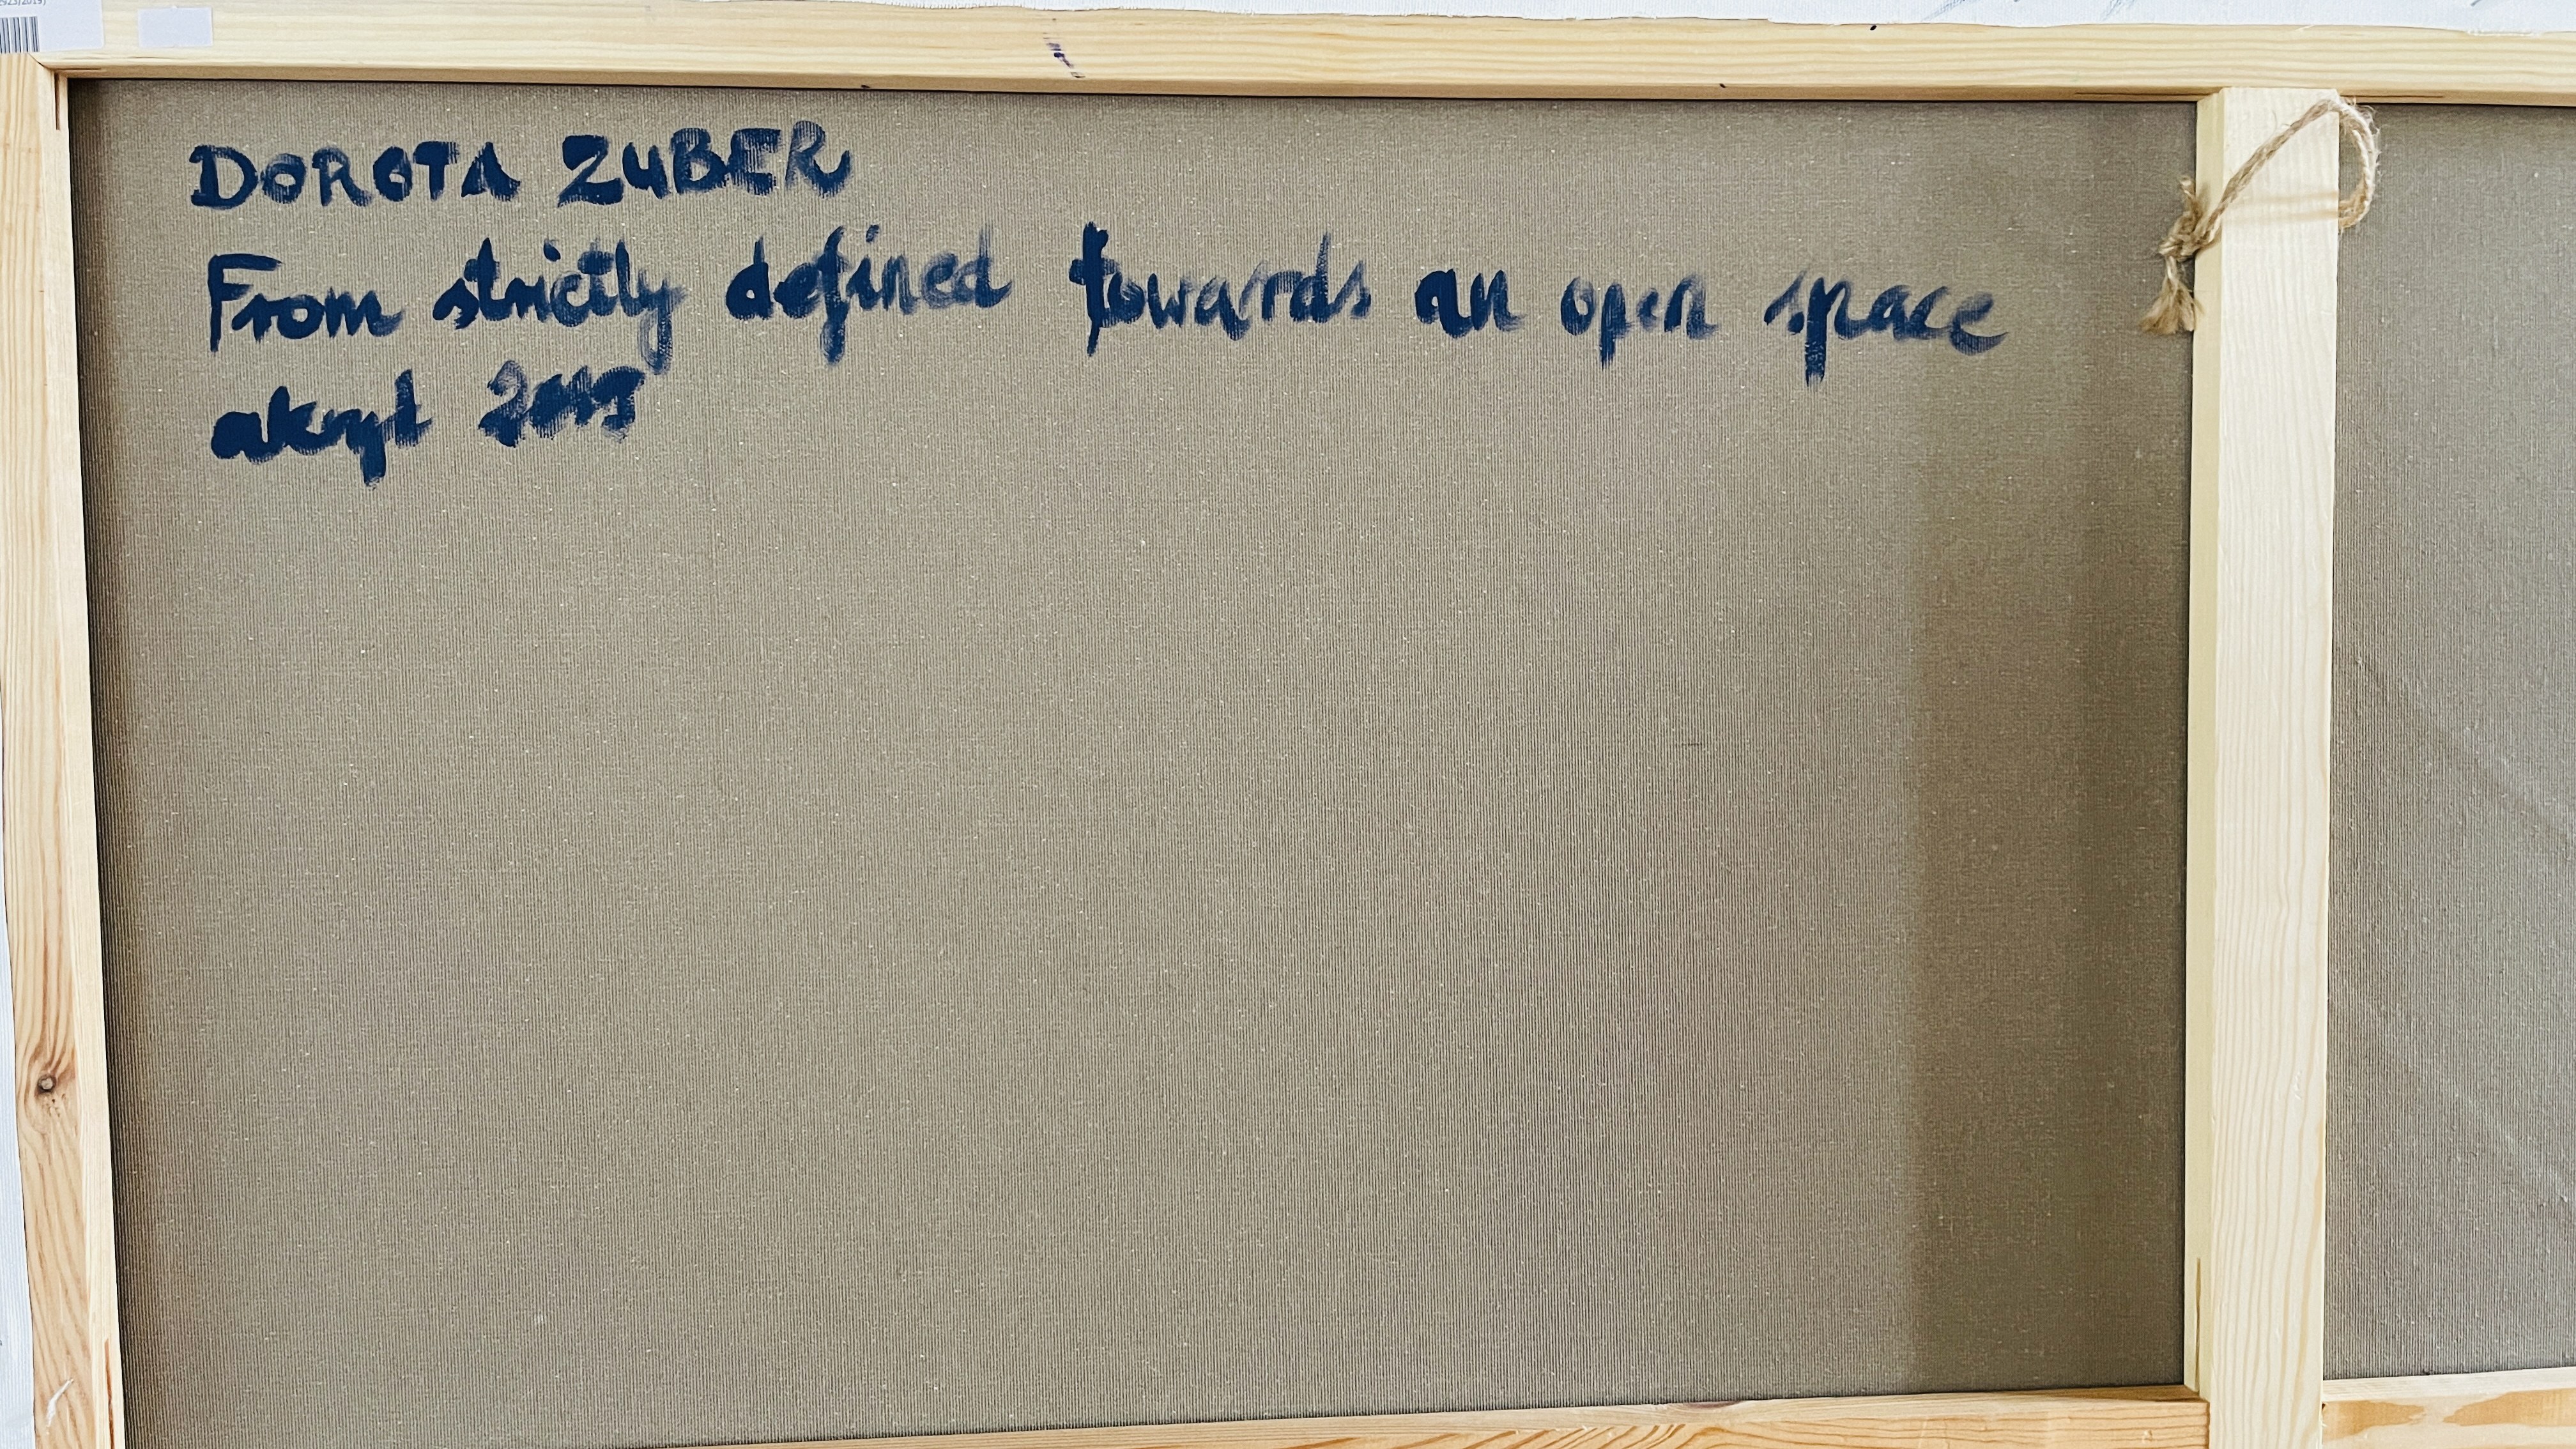 2923/2019)
DOROTA ZUBER
From strictly defined towards an open space
akryl 2019